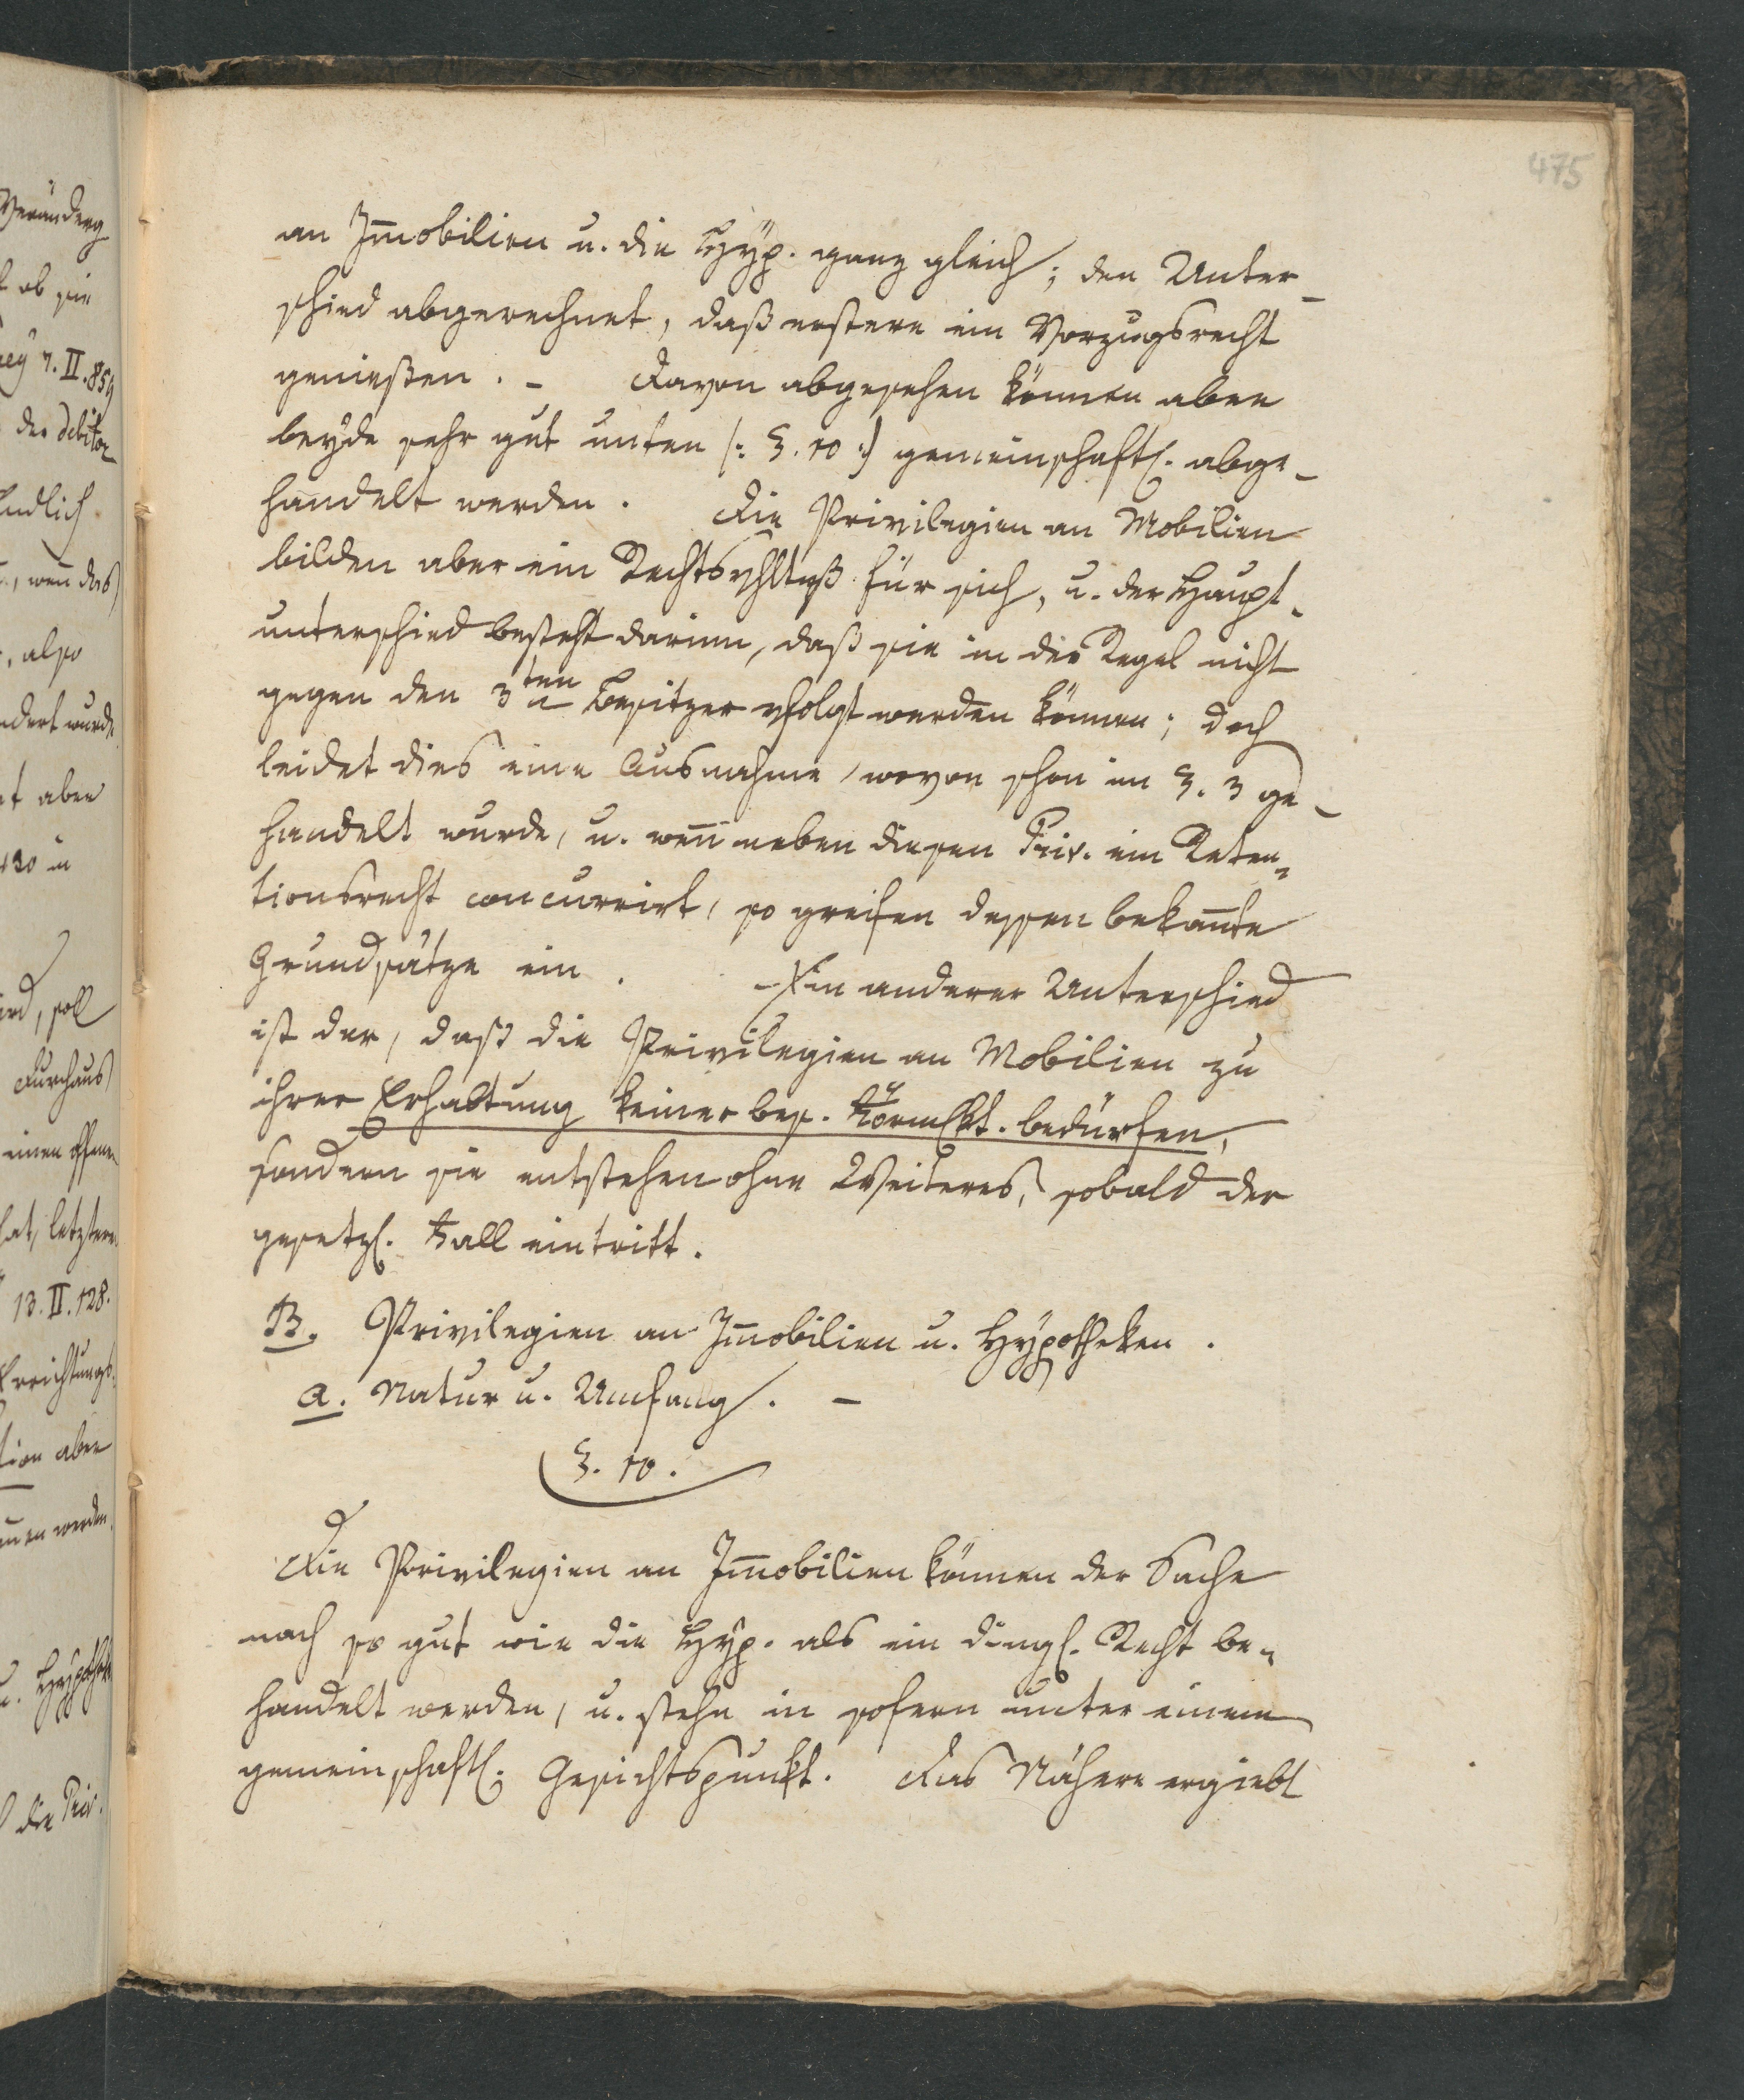 475
an Im̄obilien u. die Hÿp. ganz gleich; den Unter-
schied abgerechnet, daß erstere ein Vorzugsrecht
genießen. - Davon abgesehen können aber
beÿde sehr gut unten (: §. 10 :) gemeinschaftl. abge-
handelt werden. Die Privilegien an Mobilien
bilden aber ein Rechtsvhltniß für sich, u. der Haupt-
unterschied besteht darinn, daß sie in der Regel nicht
gegen den 3ten Besitzer vfolgt werden können; doch
leidet dies eine Ausnahme, wovon schon im §. 3 ge-
handelt wurde, u. wen̄ neben diesen Priv. ein Reten-
tionsrecht concurrirt, so greifen dessen bekan̄te
Grundsätze ein. - Ein anderer Unterschied
ist der, daß die Privilegien an Mobilien zu
ihrer Erhaltung keiner bes. Förmlkt. bedürfen,
sondern sie entstehen ohne Weiteres, sobald der
gesetzl. Fall eintritt.
B. Privilegien an Im̄obilien u. Hÿpotheken.
a. Natur u. Umfang. -
§. 10.
Die Privilegien an Im̄obilien können der Sache
nach so gut wie die Hÿp. als ein dingl. Recht be-
handelt werden, u. stehn in sofern unter einem
gemeinschaftl. Gesichtspunkt. Das Nähere ergiebt